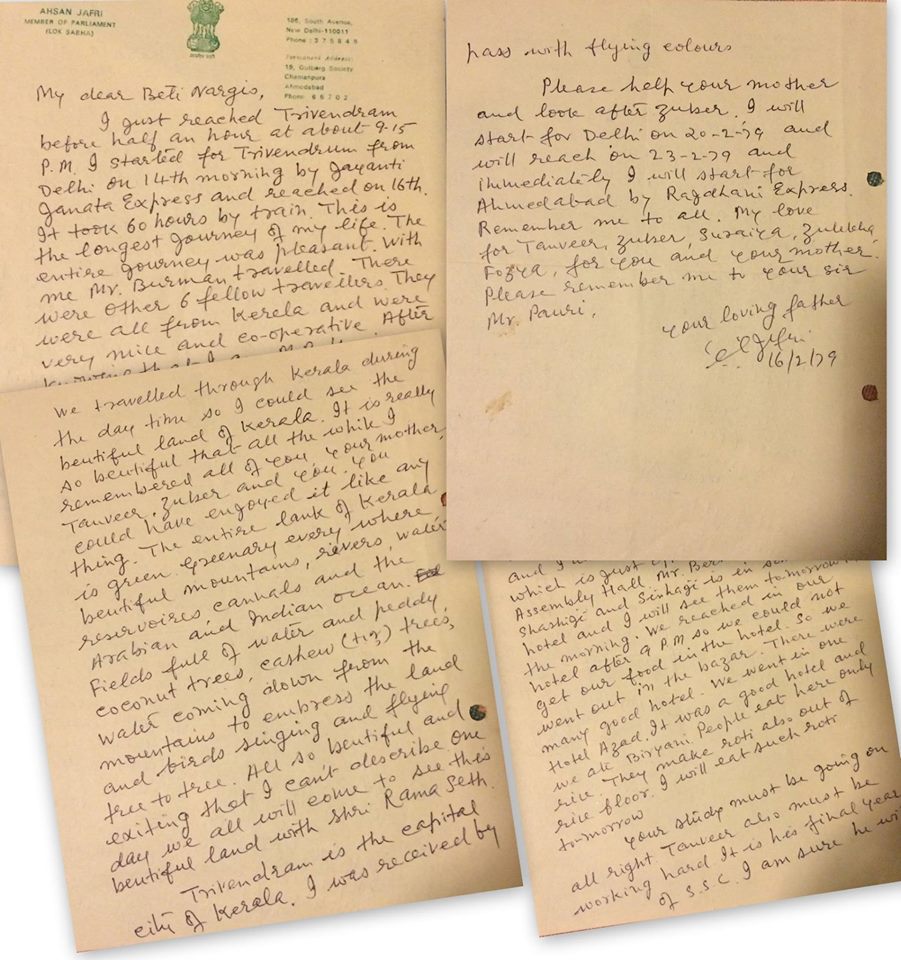 AHSAN JAFRI
MEMBER OF PARLIAMENT
(LOK SABHA)
186, South Avenue,
New Delhi-110011
Phone: 375849
Permanent Address:
19, Gulberg Society
Chamanpura
Ahmedabad
Phone: 66702
My dear Beti Nargis,
I just reached Trivendram
before half an hour at about 9-15
P.M. I started for Trivendrum from
Delhi on 14th morning by Jayanti
Janata Express and reached on 16th.
It took 60 hours by train. This is
the longest journey of my life. The
entire journey was pleasant. With
me Mr. Burman travelled. There
were other 6 fellow travellers. They
were all from Kerela and were
very nice and co-operative. After
we travelled through Kerala during
the day time so I could see the
beutiful land of Kerala. It is really
so beutiful that all the while I
remembered all of you, your mother,
Tanveer, Zuber and you. You
could have enjoyed it like any
thing. The entire lank of Kerala
is green. Greenary every where
beutiful mountains, rievers, water
reservoires, cannals and the
Arabian and Indian Ocean.
Fields full of water and peddy,
coconut trees, cashew (કાજુ) trees,
water coming down from the
mountains to embress the land
and birds singing and flying
tree to tree. All so beutiful and
exiting that I can't describe one
day we all will come to see this
beutiful land with Shri Rama Seth.
Trivendram is the capital
city of Kerala. I was received by
and I
which is just
Assembly Hall. Mr.
Shashiji and
hotel and I will see them tomorrow
the morning. We reached in our
hotel after 9 P.M so we could not
get our food in the hotel. So we
went out in the bazar. There were
many good hotel. We went in one
Hotel Azad. It was a good hotel and
we ate Biryani People eat here only
rice. They make roti also out of
rice floor. I will eat such roti
tomorrow
Your study must be going on
all right. Tanveer also must be
working hard It is his final year
of S.S.C. I am sure he wi
pass with flying colours
Please help your mother
and look after Zuber. I will
start for Delhi on 20-2-79 and
will reach on 23-2-79 and
immediately I will start for
Ahmedabad by Rajdhani Express.
Remember me to all. My love
for Tanveer, Zuber, Suraiya, Zulekha,
Fozya, for you and your mother.
Please remember me to your sir
Mr. Pauri.
Your loving father
16/2/79